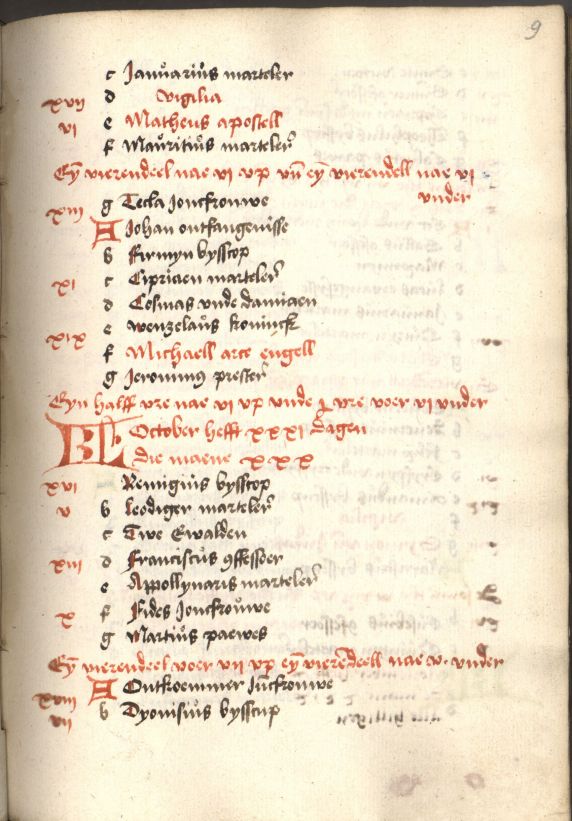 9
c Januarius marteler
xvii d vigilia
vi e Matheus apostell
f Mauritius marteler
Eyn vierendeel nae vi vp vn eyn vierendell nae vi
vnder
xiiii g Tecla Joncfrouwe
A Johan ontfangenisse
b Firmyn bysscop
xi c Cipriaen marteler
d Cosmas vnde damiaen
e wenzelaus koninck
xix f Michaell arce engell
g Jeronimus prester
Eyn halff vre nae vi vp vnde j vre voer vi vnder
KL October hefft xxxi dagen
die maene xxx
xvi Remigius bysscop
v b Leodiger marteler
c Twe Ewalden
xiii d Franciscus confessoer
e Appollynaris marteler
x f Fides Joncfrouwe
g Martius paewes
Eyn vierendeel voer vii vp eyn vierendeell nae v vnder
xviii A Ontkoemmer Juncfrouwe
vii b Dyonisius bysscup